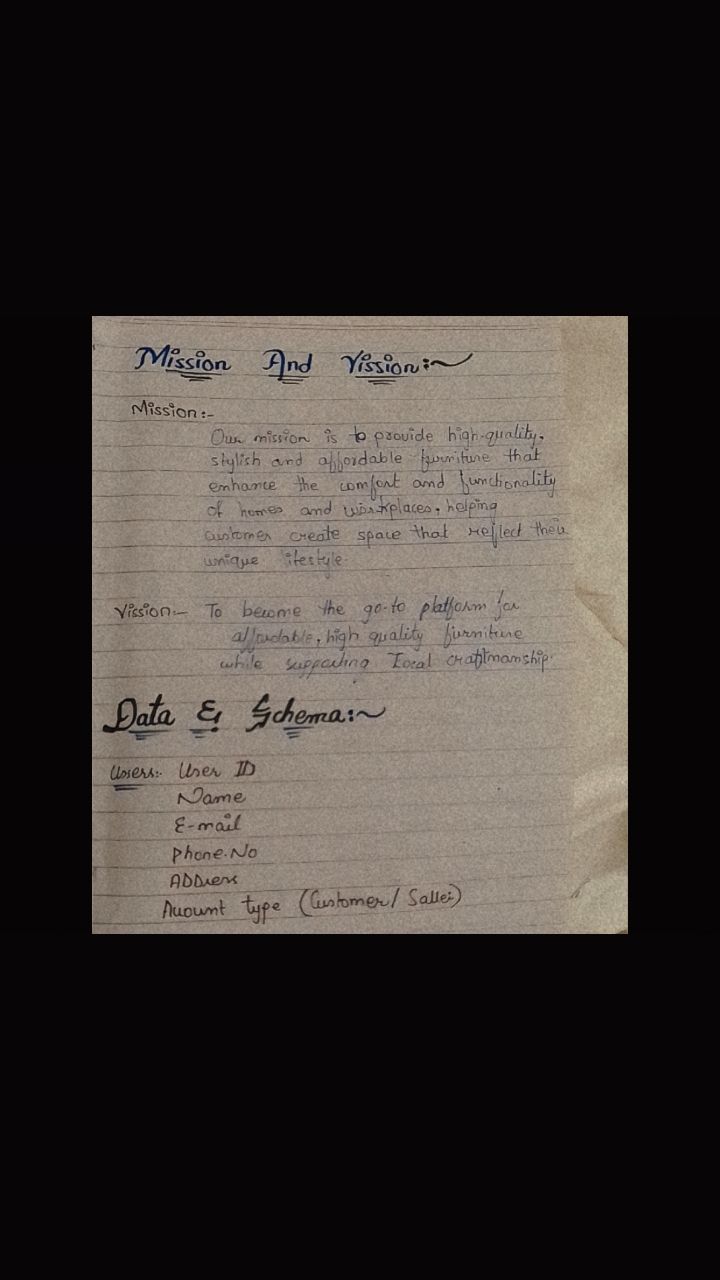 Mission And Vission:~
Mission:-
Our mission is to provide high-quality,
stylish and affordable furniture that
enhance the comfort and functionality
of homes and workplaces, helping
customer create space that reflect their
unique lifestyle.
Vission:- To become the go-to platform for
affordable, high quality furniture
while supporting local craftmanship.
Data & Schema:~
Users:- User ID
Name
E-mail
Phone.No
ADDress
Account type (Customer/ Saller)